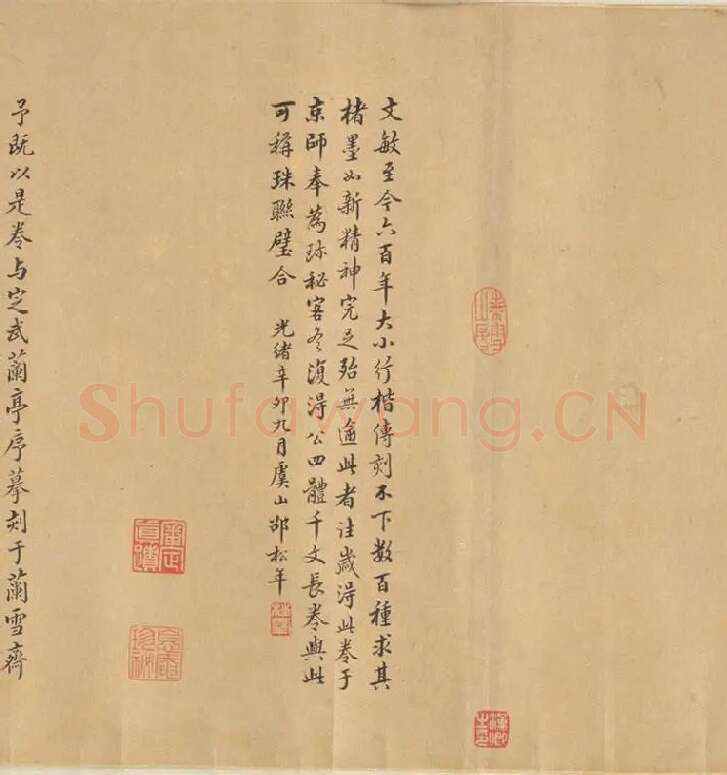 文敏至今六百年大小行楷傳刻不下數百種求其
楮墨如新精神完足殆無逾此者往歲得此卷于
京師奉為珎秘客冬復得公四體千文長卷與此
可稱珠聯璧合 光緒辛卯九月虞山邵松年
予既以是卷与定武蘭亭序摹刻于蘭雪齋
Shufawang.CN